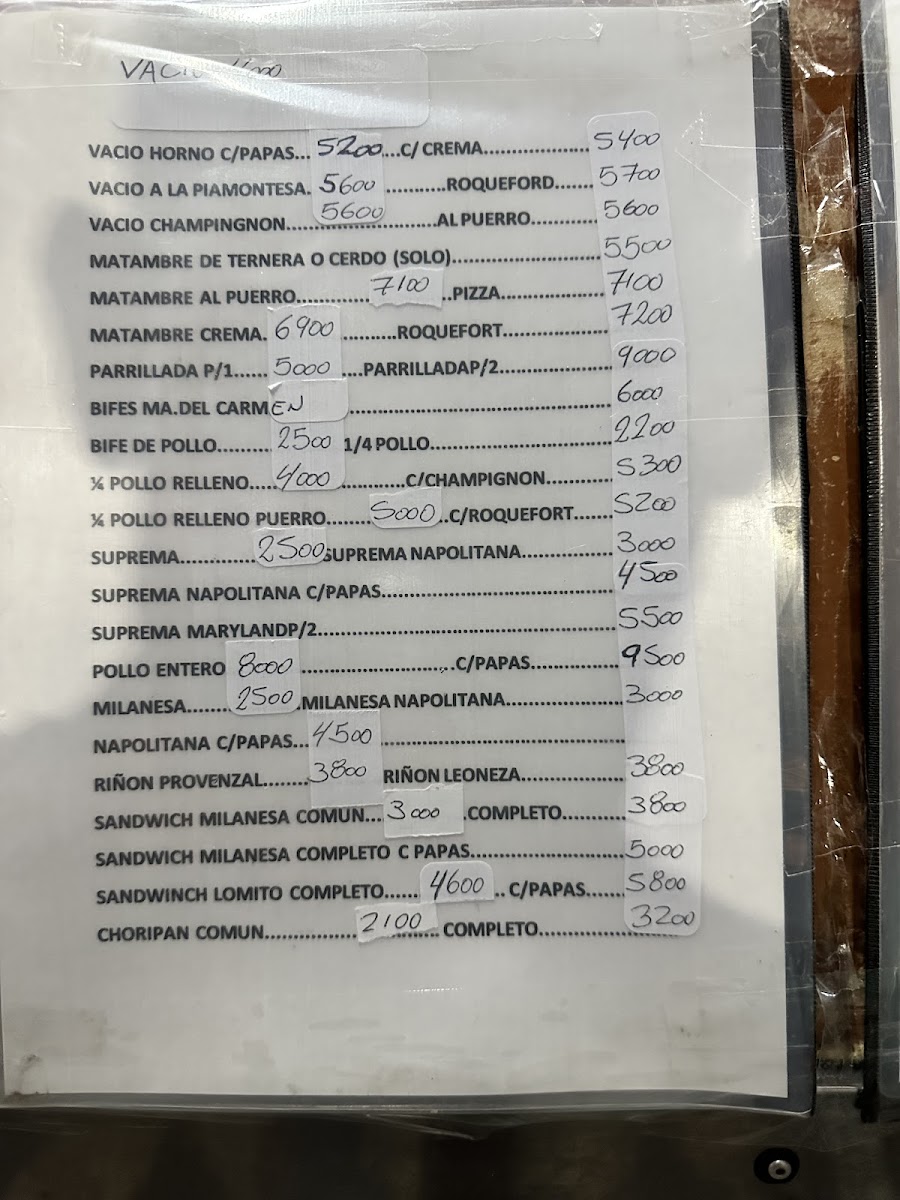 VACIO 4000
VACIO HORNO C/PAPAS... 5200....C/ CREMA.................. 5400
VACIO A LA PIAMONTESA. 5600 ..........ROQUEFORD....... 5700
VACIO CHAMPINGNON......... 5600 ..............AL PUERRO............ 5600
MATAMBRE DE TERNERA O CERDO (SOLO)......................... 5500
MATAMBRE AL PUERRO............. 7100 ..PIZZA.................. 7100
MATAMBRE CREMA. 6900 ..........ROQUEFORT................... 7200
PARRILLADA P/1...... 5000 ....PARRILLADAP/2................... 9000
BIFES MA.DEL CARMEN ............................................. 6000
BIFE DE POLLO......... 2500 1/4 POLLO............................... 2200
¼ POLLO RELLENO.... 4000 ............C/CHAMPIGNON............ 5300
¼ POLLO RELLENO PUERRO........ 5000 ..C/ROQUEFORT....... 5200
SUPREMA.............. 2500 SUPREMA NAPOLITANA................ 3000
SUPREMA NAPOLITANA C/PAPAS....................................... 4500
SUPREMA MARYLANDP/2................................................. 5500
POLLO ENTERO 8000 ..........................C/PAPAS............... 9500
MILANESA........ 2500 .MILANESA NAPOLITANA.................... 3000
NAPOLITANA C/PAPAS... 4500 ..........................................
RIÑON PROVENZAL........ 3800 RIÑON LEONEZA.................. 3800
SANDWICH MILANESA COMUN... 3000 .COMPLETO........... 3800
SANDWICH MILANESA COMPLETO C PAPAS........................... 5000
SANDWINCH LOMITO COMPLETO...... 4600 .. C/PAPAS...... 5800
CHORIPAN COMUN............... 2100 ........ COMPLETO.................... 3200